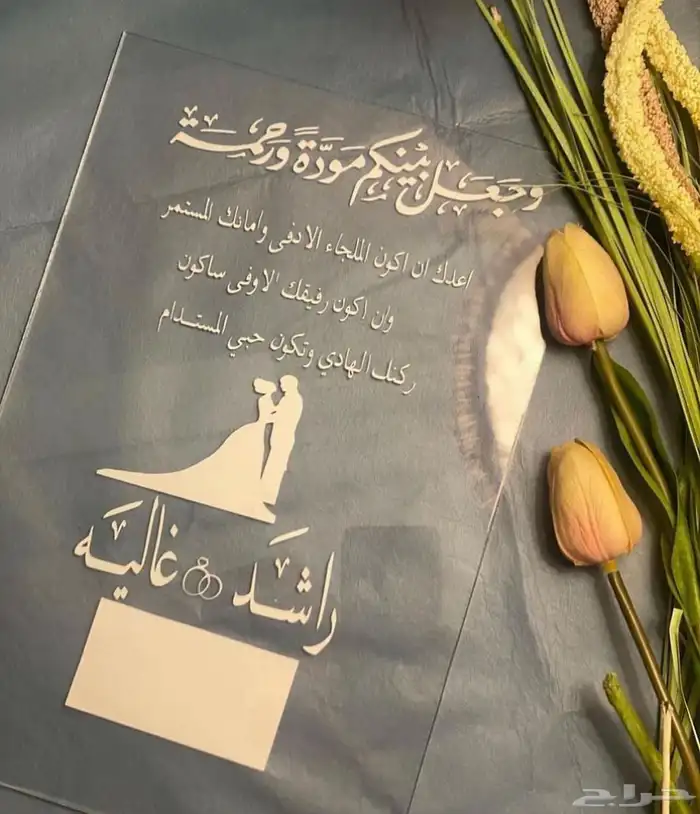 وجعل بينكم مودّةً ورحمة
اعدك ان اكون الملجاء الادفى وامانك المستمر
وان اكون رفيقك الاوفى ساكون
ركنك الهادي وتكون حبي المستدام
راشد غاليه
حراج